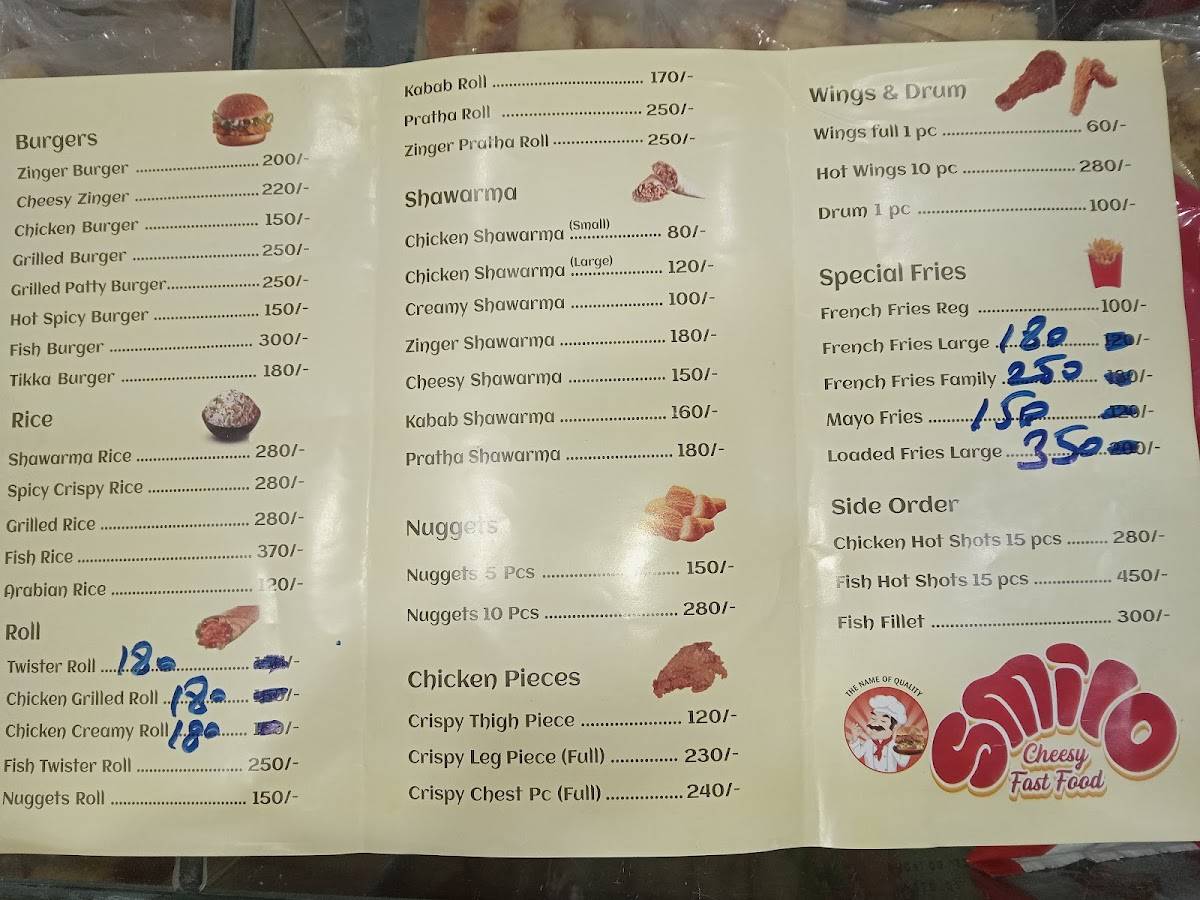 Burgers
Zinger Burger ........................ 200/-
Cheesy Zinger ........................ 220/-
Chicken Burger ........................ 150/-
Grilled Burger ........................ 250/-
Grilled Patty Burger ........................ 250/-
Hot Spicy Burger ........................ 150/-
Fish Burger ........................ 300/-
Tikka Burger ........................ 180/-
Rice
Shawarma Rice ........................ 280/-
Spicy Crispy Rice ........................ 280/-
Grilled Rice ........................ 280/-
Fish Rice ........................ 370/-
Arabian Rice ........................ 120/-
Roll
Twister Roll ...180... /-
Chicken Grilled Roll ..180... /-
Chicken Creamy Roll 180... /-
Fish Twister Roll ........................ 250/-
Nuggets Roll ........................ 150/-
Kabab Roll ........................ 170/-
Pratha Roll ........................ 250/-
Zinger Pratha Roll ........................ 250/-
Shawarma
Chicken Shawarma (Small) ........................ 80/-
Chicken Shawarma (Large) ........................ 120/-
Creamy Shawarma ........................ 100/-
Zinger Shawarma ........................ 180/-
Cheesy Shawarma ........................ 150/-
Kabab Shawarma ........................ 160/-
Pratha Shawarma ........................ 180/-
Nuggets
Nuggets 5 Pcs ........................ 150/-
Nuggets 10 Pcs ........................ 280/-
Chicken Pieces
Crispy Thigh Piece ........................ 120/-
Crispy Leg Piece (Full) ............. 230/-
Crispy Chest Pc (Full) ............... 240/-
Wings & Drum
Wings full 1 pc ........................ 60/-
Hot Wings 10 pc ........................ 280/-
Drum 1 pc ........................ 100/-
Special Fries
French Fries Reg ........................ 100/-
French Fries Large .180... 120/-
French Fries Family .250... /-
Mayo Fries .....150... 120/-
Loaded Fries Large ..350 200/-
Side Order
Chicken Hot Shots 15 pcs ......... 280/-
Fish Hot Shots 15 pcs ............... 450/-
Fish Fillet ........................ 300/-
THE NAME OF QUALITY
Smilo
Cheesy
Fast Food